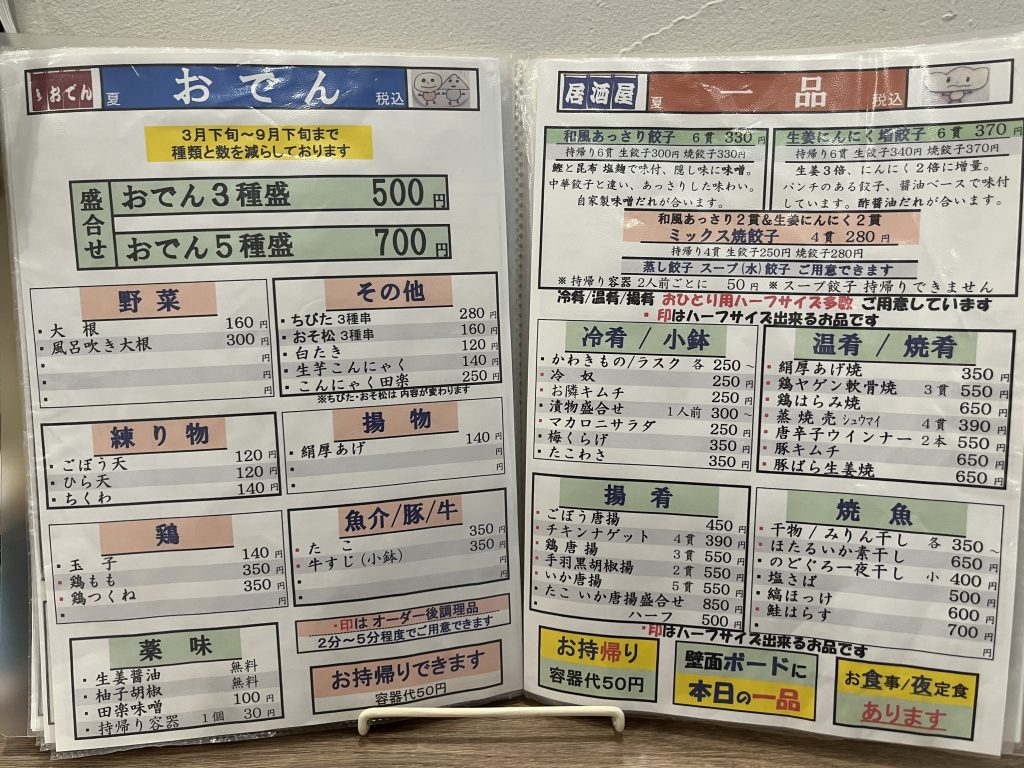 おでん
夏
おでん
税込
3月下旬～9月下旬まで
種類と数を減らしております
盛合せ
おでん3種盛 500円
おでん5種盛 700円
野菜
・大根 160円
・風呂吹き大根 300円
・ 円
・ 円
・ 円
その他
・ちびた 3種串 280円
・おそ松 3種串 160円
・白たき 120円
・生芋こんにゃく 140円
・こんにゃく田楽 250円
※ちびた・おそ松は 内容が変わります
練り物
・ごぼう天 120円
・ひら天 120円
・ちくわ 140円
揚物
・絹厚あげ 140円
・ 円
・ 円
鶏
・玉子 140円
・鶏もも 350円
・鶏つくね 350円
魚介/豚/牛
・たこ 350円
・牛すじ(小鉢) 350円
薬味
・生姜醤油 無料
・柚子胡椒 無料
・田楽味噌 100円
・持帰り容器 1個 30円
・印は オーダー後調理品
2分～5分程度でご用意できます
お持帰りできます
容器代50円
居酒屋
夏
一品
税込
和風あっさり餃子 6貫 330円
持帰り6貫 生餃子300円 焼餃子330円
鰹と昆布 塩麹で味付、隠し味に味噌。
中華餃子と違い、あっさりした味わい。
自家製味噌だれが合います。
生姜にんにく塩餃子 6貫 370円
持帰り6貫 生餃子340円 焼餃子370円
生姜3倍、にんにく2倍に増量。
パンチのある餃子、醤油ベースで味付
しています。酢醤油だれが合います。
和風あっさり2貫&生姜にんにく2貫
ミックス焼餃子 4貫 280円
持帰り4貫 生餃子250円 焼餃子280円
蒸し餃子 スープ(水)餃子 ご用意できます
※持帰り容器 2人前ごとに 50円 ※スープ餃子 持帰りできません
冷肴/温肴/揚肴 おひとり用ハーフサイズ多数 ご用意しています
・印はハーフサイズ出来るお品です
冷肴/小鉢
・かわきもの/ラスク 各250～
・冷奴 250円
・お隣キムチ 250円
・漬物盛合せ 1人前 300～
・マカロニサラダ 250円
・梅くらげ 350円
・たこわさ 350円
温肴/焼肴
・絹厚あげ焼 350円
・鶏ヤゲン軟骨焼 3貫 550円
・鶏はらみ焼 650円
・蒸焼売 シュウマイ 4貫 390円
・唐辛子ウインナー 2本 550円
・豚キムチ 650円
・豚ばら生姜焼 650円
揚肴
・ごぼう唐揚 450円
・チキンナゲット 4貫 390円
・鶏唐揚 3貫 550円
・手羽黒胡椒揚 2貫 550円
・いか唐揚 5貫 550円
・たこ いか唐揚盛合せ 850円
ハーフ 500円
焼魚
・干物/みりん干し 各350～
・ほたるいか素干し 650円
・のどぐろ一夜干し 小 400円
・塩さば 500円
・縞ほっけ 600円
・鮭はらす 700円
・印はハーフサイズ出来るお品です
お持帰り
容器代50円
壁面ボードに
本日の一品
お食事/夜定食
あります